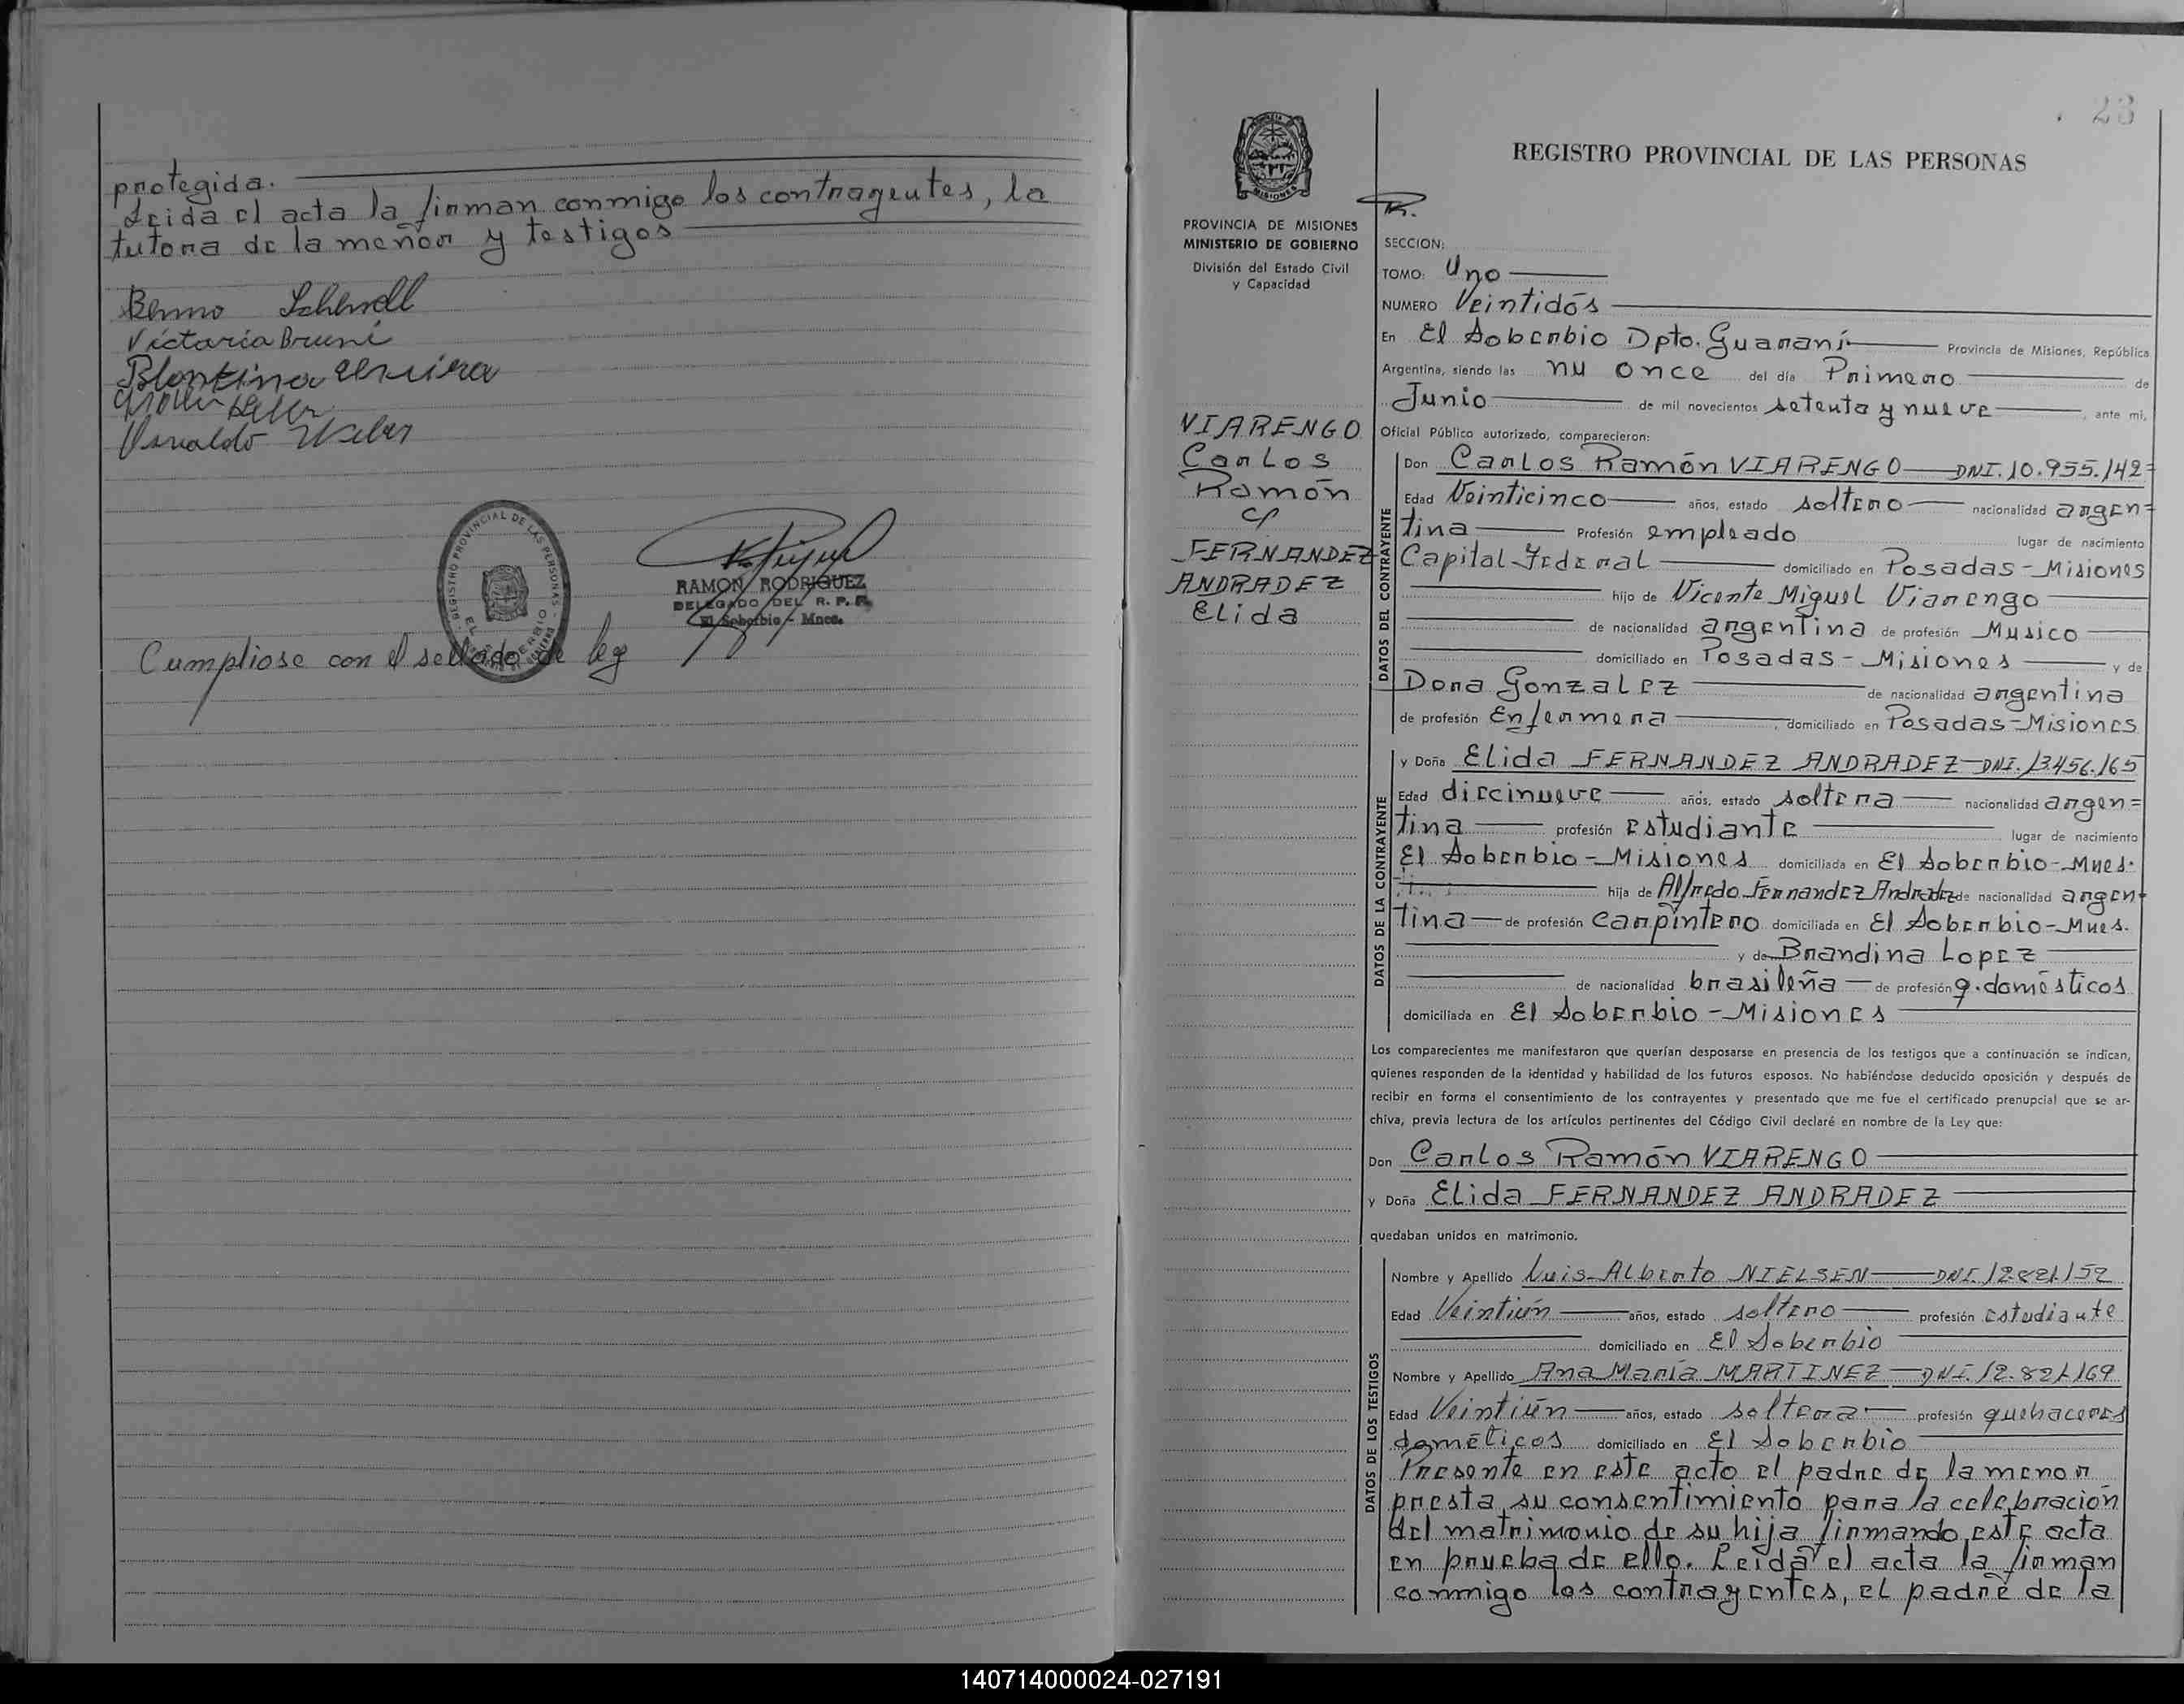 protegida.
Leida el acta la firman conmigo los contrayentes, la
tutora de la menor y testigos
Benno Schendl
Victoria Bruni
Osvaldo
REGISTRO PROVINCIAL DE LAS PERSONAS
EL SOBERBIO
RAMON RODRIGUEZ
DELEGADO DEL R. P. P.
El Soberbio - Mnes.
Cumpliose con el sellado de ley
23
PROVINCIA DE MISIONES
MINISTERIO DE GOBIERNO
División del Estado Civil
y Capacidad
VIARENGO
Carlos
Ramón
c/
FERNANDEZ
ANDRADEZ
Elida
REGISTRO PROVINCIAL DE LAS PERSONAS
SECCION:
TOMO: Uno
NUMERO Veintidós
En El Soberbio Dpto. Guaraní Provincia de Misiones, República
Argentina, siendo las once del día Primero de
Junio de mil novecientos setenta y nueve, ante mi,
Oficial Público autorizado, comparecieron:
DATOS DEL CONTRAYENTE
Don Carlos Ramón VIARENGO DNI. 10.955.142=
Edad Veinticinco años, estado soltero nacionalidad argen=
tina Profesión empleado lugar de nacimiento
Capital Federal domiciliado en Posadas - Misiones
hijo de Vicente Miguel Viarengo
de nacionalidad argentina de profesión Musico
domiciliado en Posadas - Misiones y de
Dora Gonzalez de nacionalidad argentina
de profesión Enfermera, domiciliado en Posadas-Misiones
DATOS DE LA CONTRAYENTE
y Doña Elida FERNANDEZ ANDRADEZ DNI. 13.456.165
Edad diecinueve años, estado soltera nacionalidad argen=
tina profesión estudiante lugar de nacimiento
El Soberbio - Misiones domiciliada en El Soberbio - Mnes.
hija de Alfredo Fernandez Andradez de nacionalidad argen=
tina de profesión carpintero domiciliada en El Soberbio - Mnes.
y de Brandina Lopez
de nacionalidad brasileña de profesión q. domésticos
domiciliada en El Soberbio - Misiones
Los comparecientes me manifestaron que querían desposarse en presencia de los testigos que a continuación se indican,
quienes responden de la identidad y habilidad de los futuros esposos. No habiéndose deducido oposición y después de
recibir en forma el consentimiento de los contrayentes y presentado que me fue el certificado prenupcial que se ar-
chiva, previa lectura de los artículos pertinentes del Código Civil declaré en nombre de la Ley que:
Don Carlos Ramón VIARENGO
y Doña Elida FERNANDEZ ANDRADEZ
quedaban unidos en matrimonio.
DATOS DE LOS TESTIGOS
Nombre y Apellido Luis Alberto NIELSEN DNI. 12.821.152
Edad Veintiún años, estado soltero profesión estudiante
domiciliado en El Soberbio
Nombre y Apellido Ana María MARTINEZ DNI. 12.821.169
Edad Veintiún años, estado soltera profesión quehaceres
dométicos domiciliado en El Soberbio
Presente en este acto el padre de la menor
presta su consentimiento para la celebración
del matrimonio de su hija firmando este acta
en prueba de ello. Leida el acta la firman
conmigo los contrayentes, el padre de la
140714000024-027191